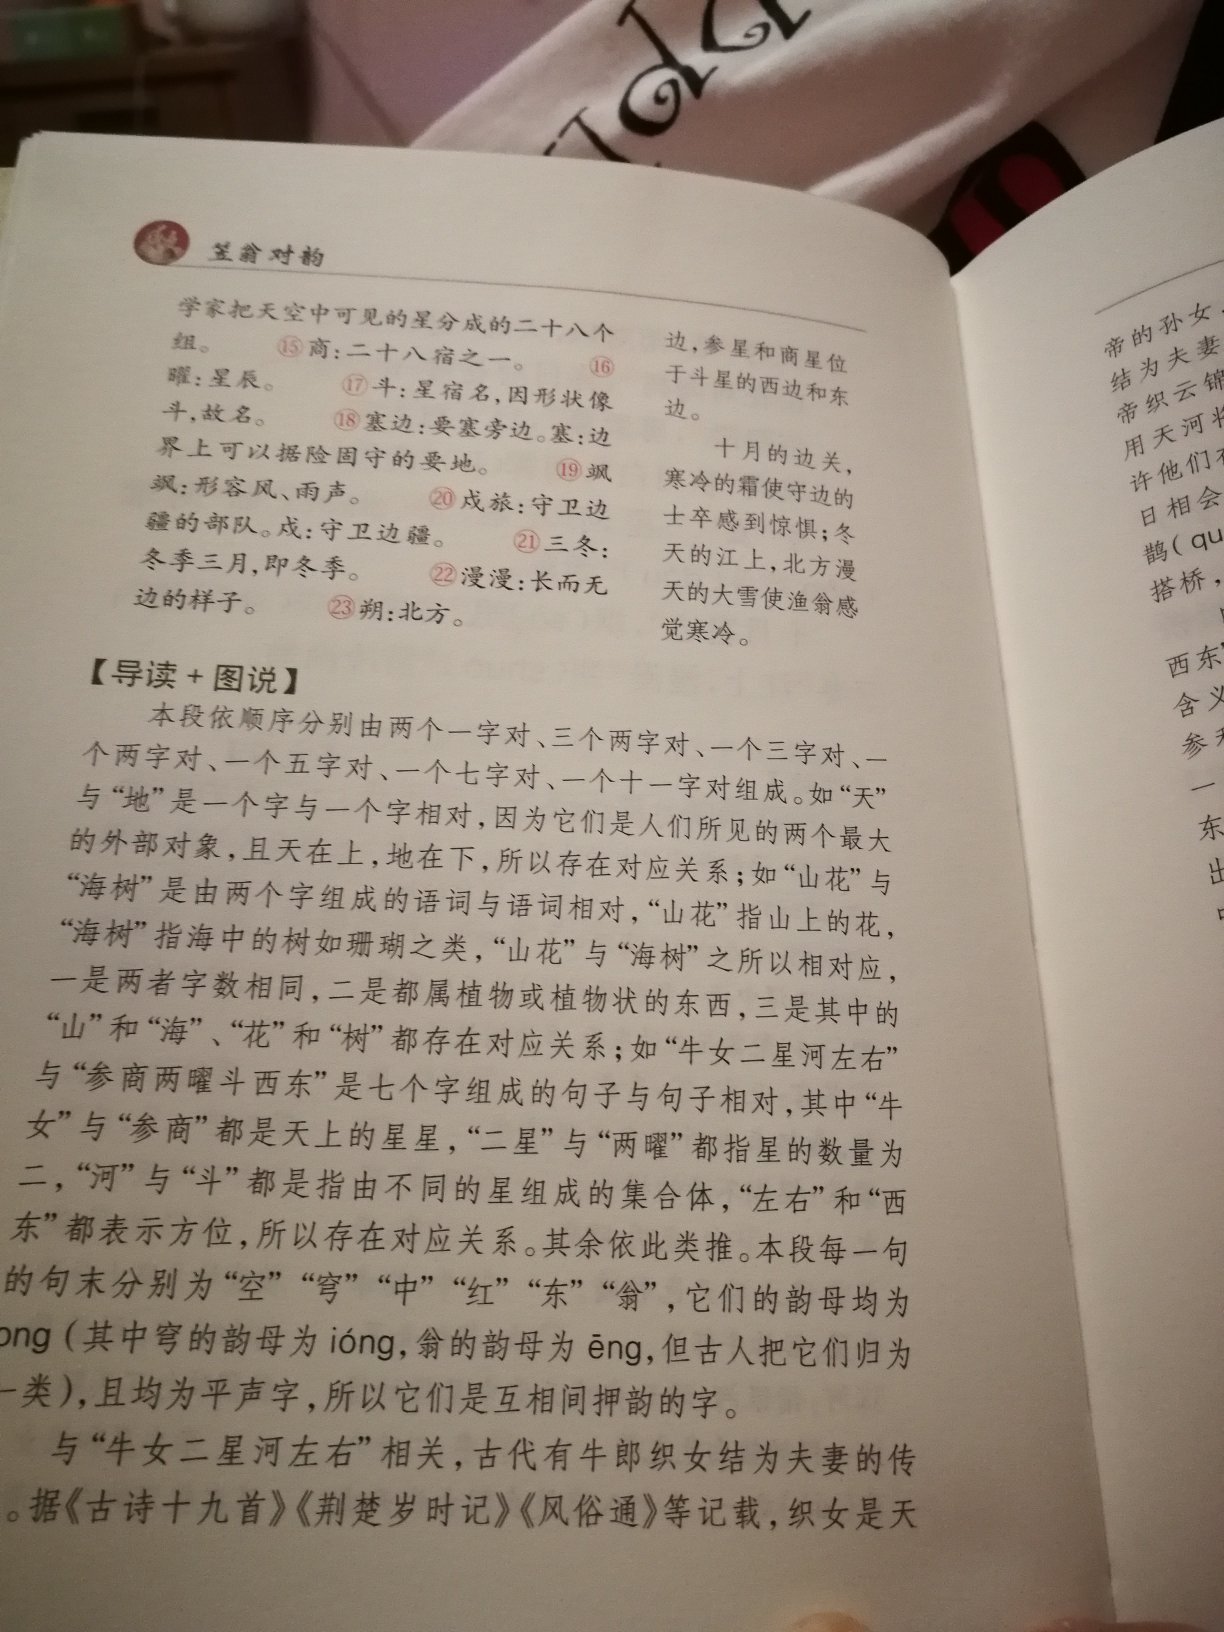 笠翁对韵
学家把天空中可见的星分成的二十八个
组。 ⑮商:二十八宿之一。 ⑯
曜:星辰。 ⑰斗:星宿名,因形状像
斗,故名。 ⑱塞边:要塞旁边。塞:边
界上可以据险固守的要地。 ⑲飒
飒:形容风、雨声。 ⑳戍旅:守卫边
疆的部队。戍:守卫边疆。 ㉑三冬:
冬季三月,即冬季。 ㉒漫漫:长而无
边的样子。 ㉓朔:北方。
边,参星和商星位
于斗星的西边和东
边。
十月的边关,
寒冷的霜使守边的
士卒感到惊惧;冬
天的江上,北方漫
天的大雪使渔翁感
觉寒冷。
【导读+图说】
本段依顺序分别由两个一字对、三个两字对、一个三字对、一
个两字对、一个五字对、一个七字对、一个十一字对组成。如“天”
与“地”是一个字与一个字相对,因为它们是人们所见的两个最大
的外部对象,且天在上,地在下,所以存在对应关系;如“山花”与
“海树”是由两个字组成的语词与语词相对,“山花”指山上的花,
“海树”指海中的树如珊瑚之类,“山花”与“海树”之所以相对应,
一是两者字数相同,二是都属植物或植物状的东西,三是其中的
“山”和“海”、“花”和“树”都存在对应关系;如“牛女二星河左右”
与“参商两曜斗西东”是七个字组成的句子与句子相对,其中“牛
女”与“参商”都是天上的星星,“二星”与“两曜”都指星的数量为
二,“河”与“斗”都是指由不同的星组成的集合体,“左右”和“西
东”都表示方位,所以存在对应关系。其余依此类推。本段每一句
的句末分别为“空”“穹”“中”“红”“东”“翁”,它们的韵母均为
ong(其中穹的韵母为ióng,翁的韵母为ēng,但古人把它们归为
一类),且均为平声字,所以它们是互相间押韵的字。
与“牛女二星河左右”相关,古代有牛郎织女结为夫妻的传
。据《古诗十九首》《荆楚岁时记》《风俗通》等记载,织女是天
帝的孙女
结为夫妻
帝织云锦
用天河将
许他们在
日相会
鹊(qu
搭桥,
西东”
含义
参
一
东
出